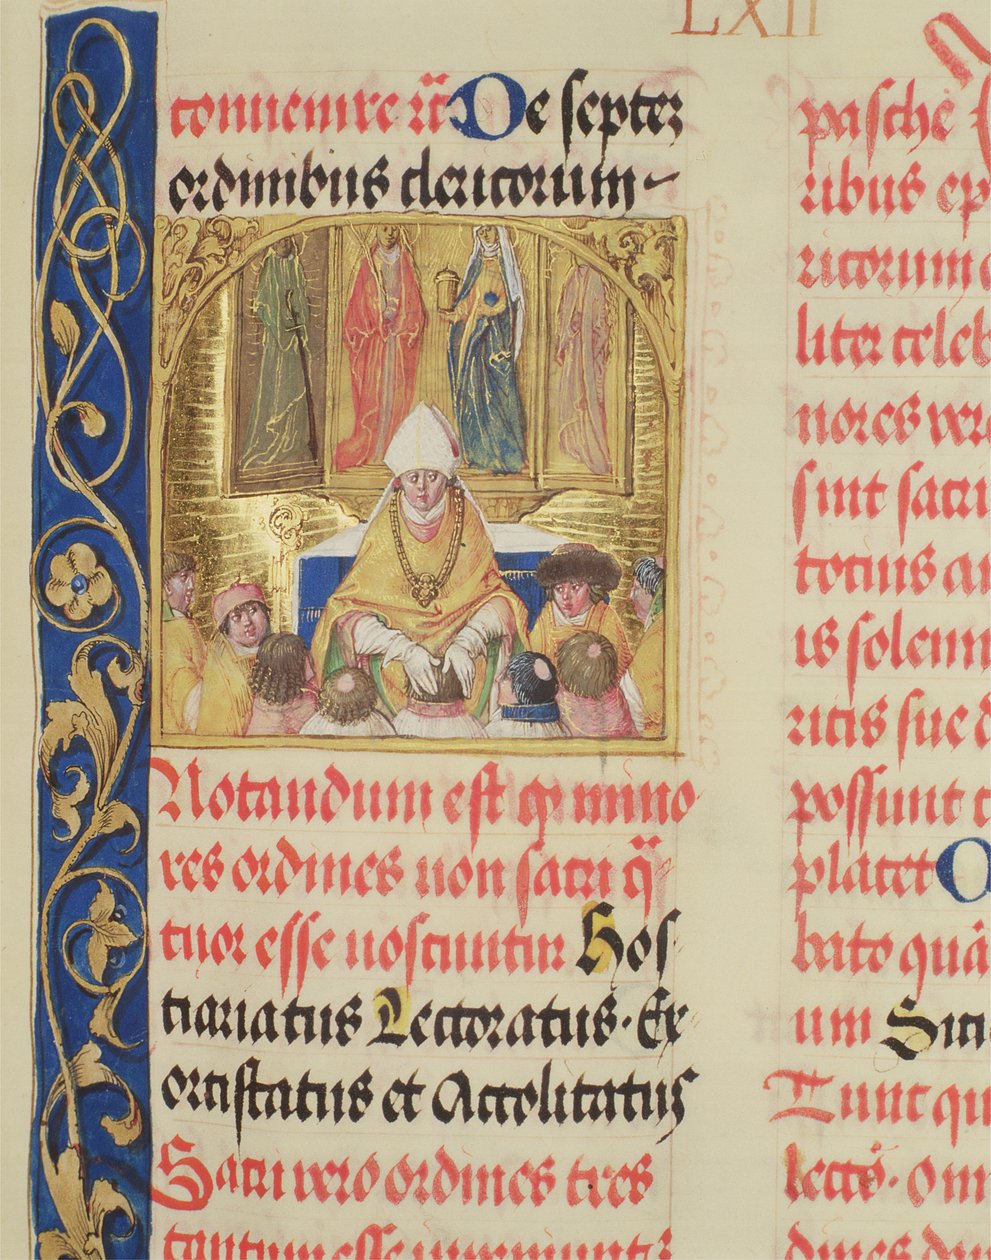 LXII
conuenire &c̃ De septeʒ
ordinibus clericorum
Notandum est qȝ mino
res ordines non sacri q̃
tuor esse noscuntur Hos
tiariatus Lectoratus. Ex
orcistatus et Accolitatus
Sacri vero ordines tres
tantum esse
pasche
ribus ep
ricorum
liter celeb
nores vero
sint sacri
totius
is solenn
ritis sue d
possunt t
placet
bato quā
um Siti
Tunc qu
lectẽ. Om